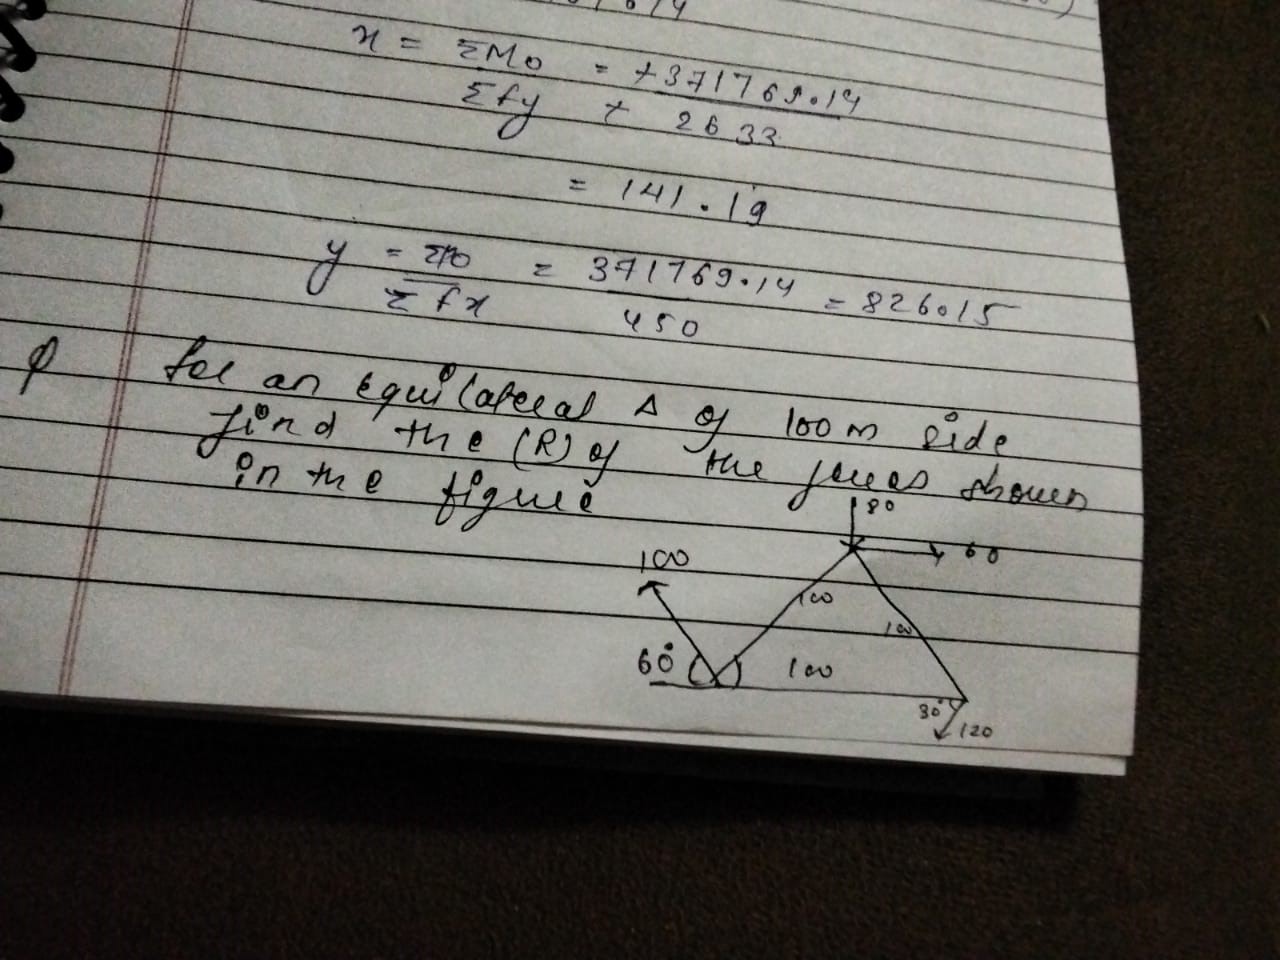 x = ΣMo = +371769.14
Σfy + 2633
= 141.19
y = Σmo = 371769.14 = 826.15
Σfx 450
for an Equilateral Δ of 100m side
find the (R) of the forces shown
in the figure
80
60
100
100
100
60° 100
30°
120